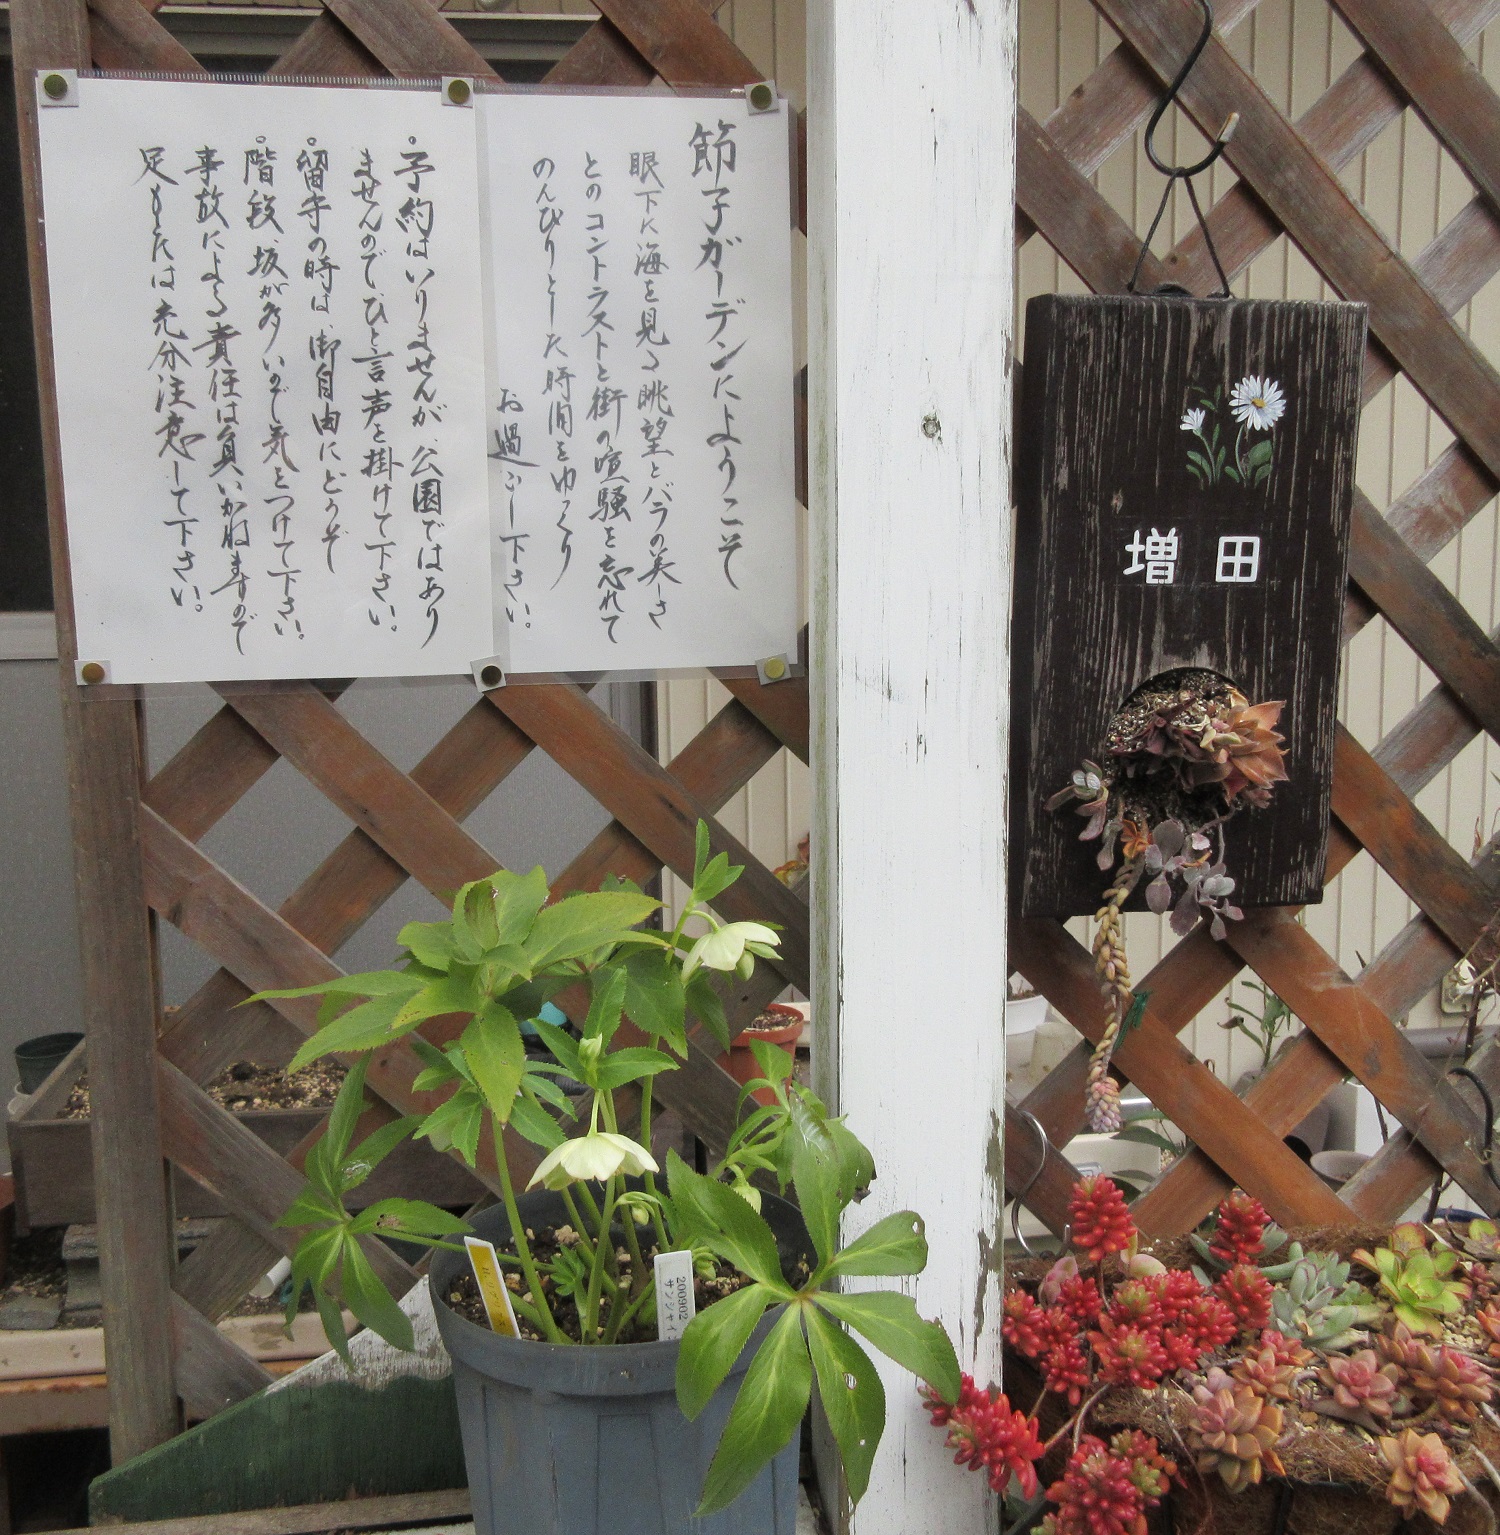 節子ガーデンにようこそ
眼下に海を見る眺望とバラの美しさ
とのコントラストと街の喧騒を忘れて
のんびりとした時間をゆっくり
お過ごし下さい。
。予約はいりませんが、公園ではあり
ませんのでひと言声を掛けて下さい。
。留守の時は、御自由にどうぞ
。階段、坂が多いので気をつけて下さい。
事故による責任は負いかねますので
足もとには充分注意して下さい。
増田
200902
サンシャ